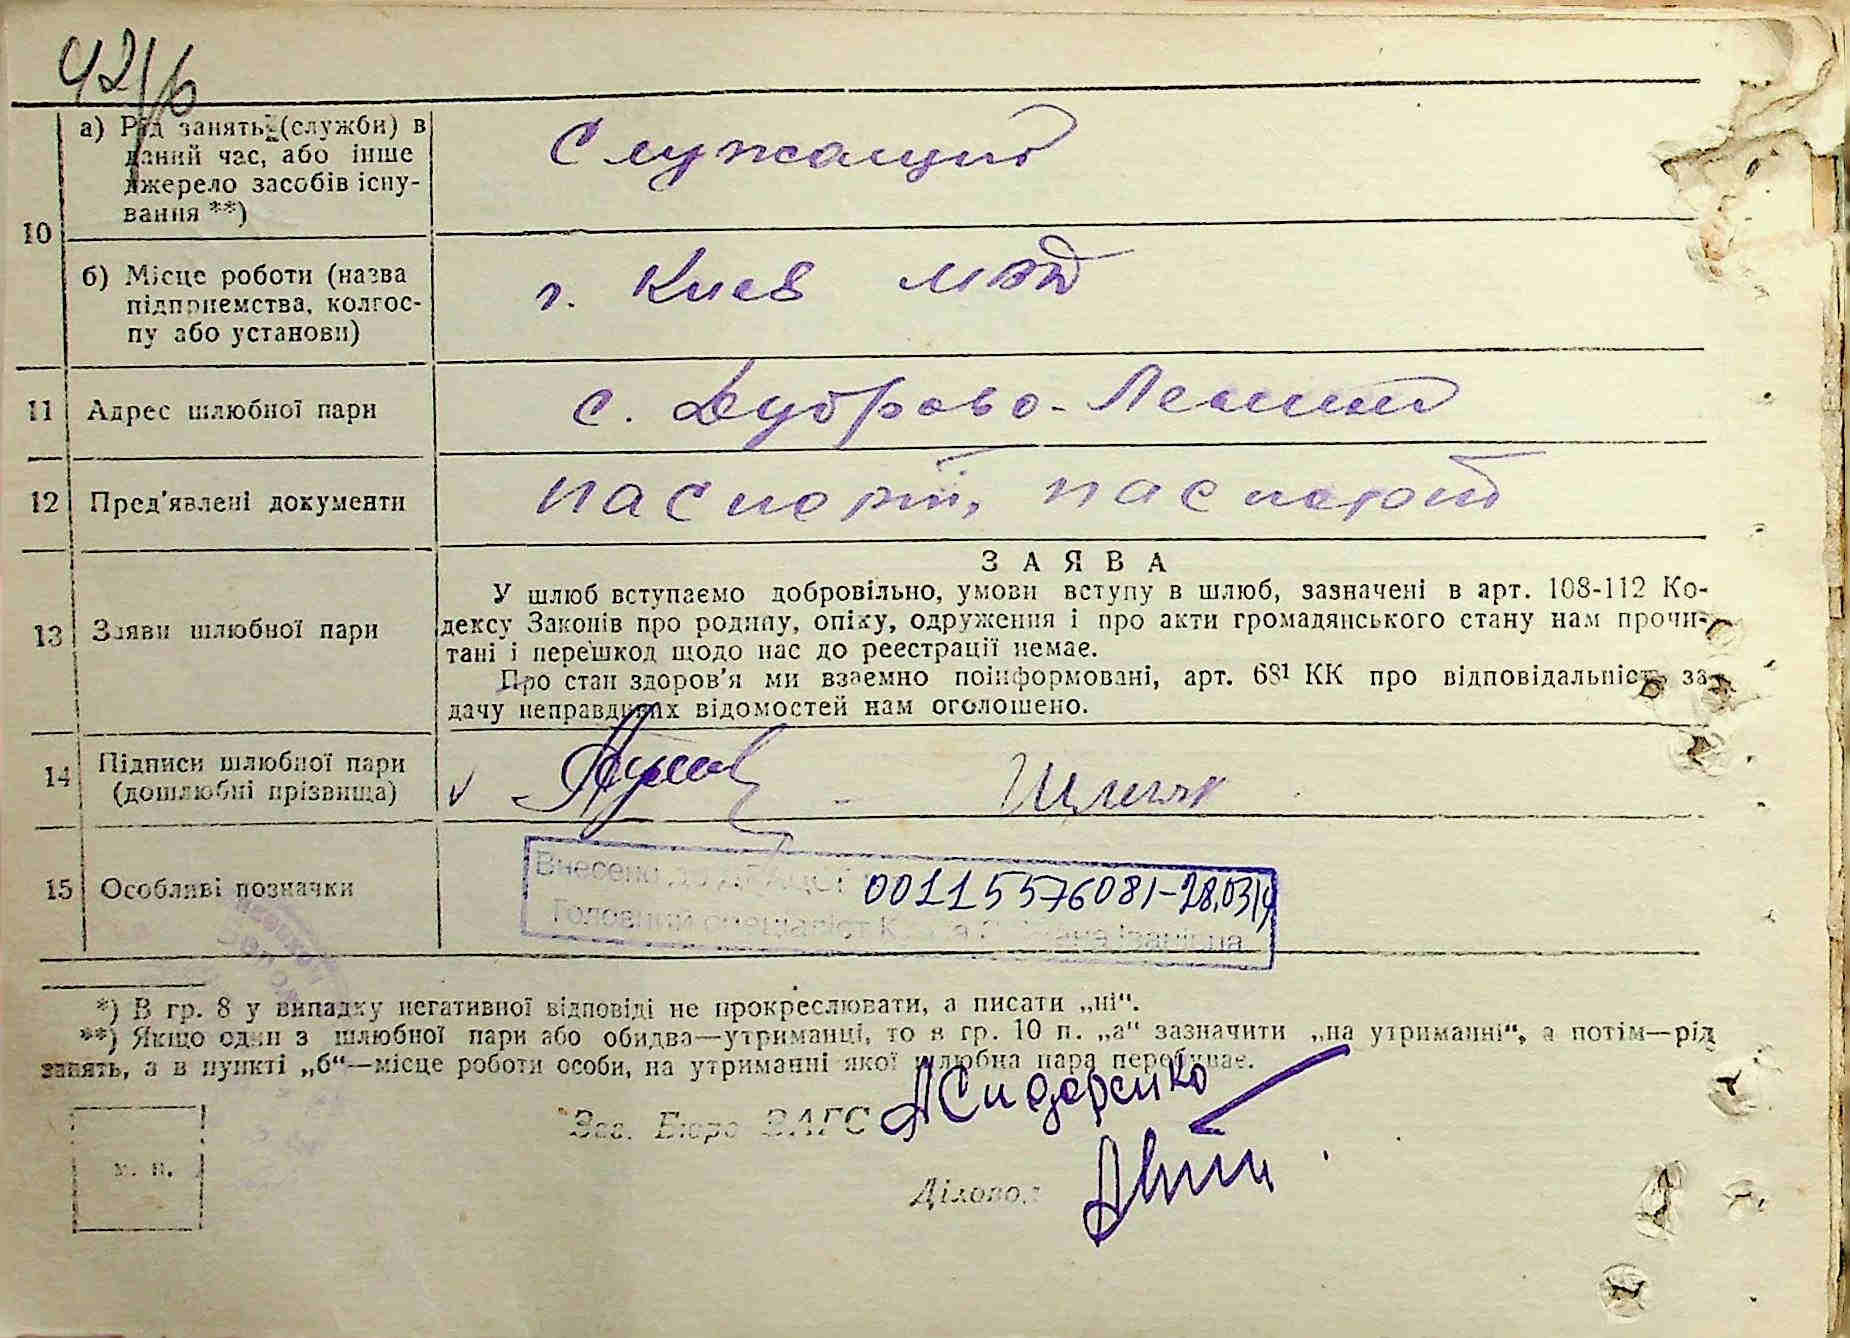 42/б
а) Рід занять (служби) в
даний час, або інше
джерело засобів існу-
вання **)
Служащий
10
б) Місце роботи (назва
підприємства, колгос-
пу або установи)
г. Киев МВД
11 Адрес шлюбної пари
с. Дуброво-Ленино
12 Пред'явлені документи
паспорт, паспорт
З А Я В А
13 Заяви шлюбної пари
У шлюб вступаємо добровільно, умови вступу в шлюб, зазначені в арт. 108-112 Ко-
дексу Законів про родину, опіку, одруження і про акти громадянського стану нам прочи-
тані і перешкод щодо нас до реестрації немає.
Про стан здоров'я ми взаемно поінформовані, арт. 68¹ КК про відповідальність за
дачу неправдивих відомостей нам оголошено.
14 Підписи шлюбної пари
(дошлюбні прізвища)
15 Особливі позначки
Внесено до 00115576081-28.03.19
Головний спеціаліст Іванівна
*) В гр. 8 у випадку негативної відповіді не прокреслювати, а писати „ні“.
**) Якщо один з шлюбної пари або обидва—утриманці, то в гр. 10 п. „а“ зазначити „на утриманні“, а потім—рід
занять, а в пункті „б“—місце роботи особи, на утриманні якої шлюбна пара перебуває.
Зав. Бюро ЗАГС АСидоренко
м. п.
Діловод